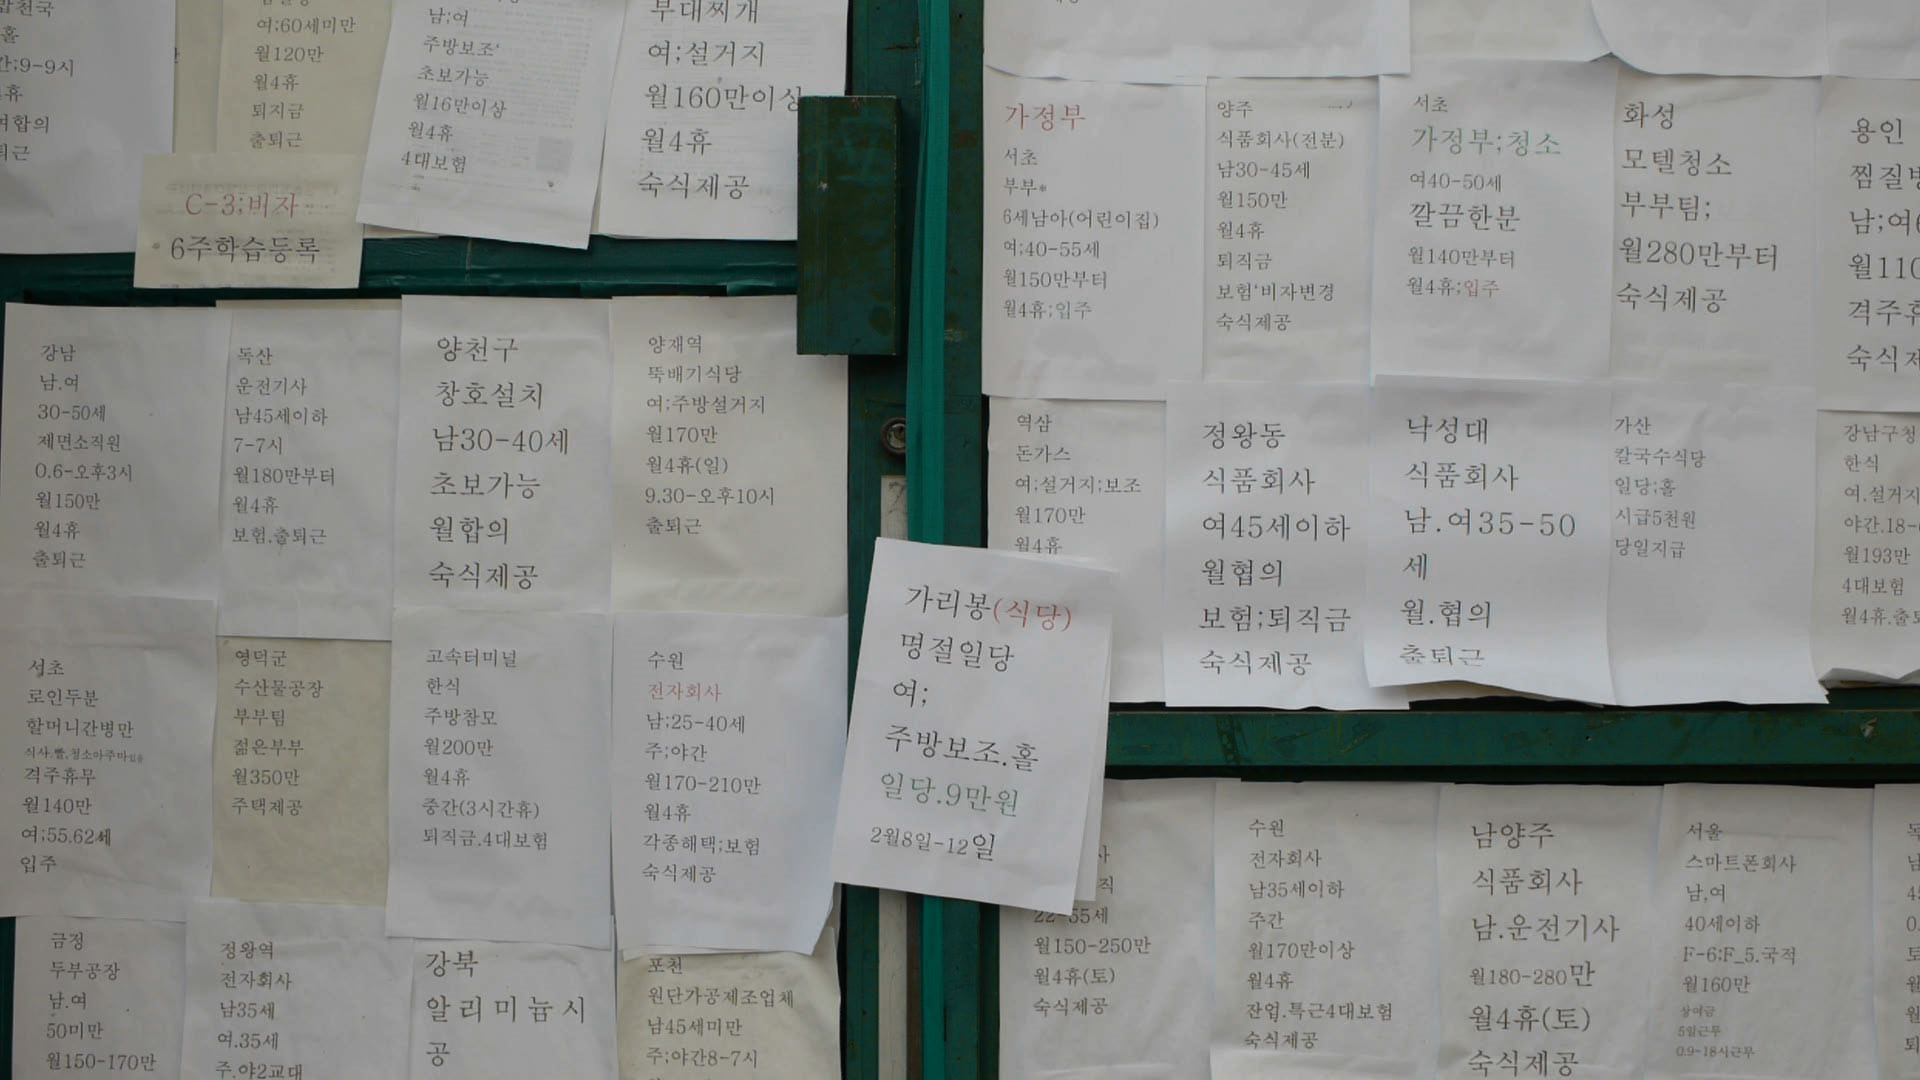 여;60세미만
월120만
월4휴
퇴지금
출퇴근
남;여
주방보조'
초보가능
월16만이상
월4휴
4대보험
부대찌개
여;설거지
월160만이상
월4휴
숙식제공
C-3;비자
6주학습등록
강남
남.여
30-50세
제면소직원
0.6-오후3시
월150만
월4휴
출퇴근
독산
운전기사
남45세이하
7-7시
월180만부터
월4휴
보험.출퇴근
양천구
창호설치
남30-40세
초보가능
월합의
숙식제공
양재역
뚝배기식당
여;주방설거지
월170만
월4휴(일)
9.30-오후10시
출퇴근
서초
로인두분
할머니간병만
식사.빨.청소아주마있음
격주휴무
월140만
여;55.62세
입주
영덕군
수산물공장
부부팀
젊은부부
월350만
주택제공
고속터미널
한식
주방참모
월200만
월4휴
중간(3시간휴)
퇴직금.4대보험
수원
전자회사
남;25-40세
주;야간
월170-210만
월4휴
각종해택;보험
숙식제공
금정
두부공장
남.여
50미만
월150-170만
정왕역
전자회사
남35세
여.35세
주.야2교대
강북
알리미늄시
공
포천
원단가공제조업체
남45세미만
주;야간8-7시
가리봉(식당)
명절일당
여;
주방보조.홀
일당.9만원
2월8일-12일
가정부
서초
부부*
6세남아(어린이집)
여;40-55세
월150만부터
월4휴;입주
양주
식품회사(전분)
남30-45세
월150만
월4휴
퇴직금
보험'비자변경
숙식제공
서초
가정부;청소
여40-50세
깔끔한분
월140만부터
월4휴;입주
화성
모텔청소
부부팀;
월280만부터
숙식제공
용인
역삼
돈가스
여;설거지;보조
월170만
월4휴
정왕동
식품회사
여45세이하
월협의
보험;퇴직금
숙식제공
낙성대
식품회사
남.여35-50
세
월.협의
출퇴근
가산
칼국수식당
일당;홀
시급5천원
당일지급
강남구청
한식
여.설거지
월193만
4대보험
월4휴.출퇴
22-55세
월150-250만
월4휴(토)
숙식제공
수원
전자회사
남35세이하
주간
월170만이상
월4휴
잔업.특근4대보험
숙식제공
남양주
식품회사
남.운전기사
월180-280만
월4휴(토)
숙식제공
서울
스마트폰회사
남,여
40세이하
F-6;F_5.국적
월160만
상여금
5일근무
0.9-18시근무